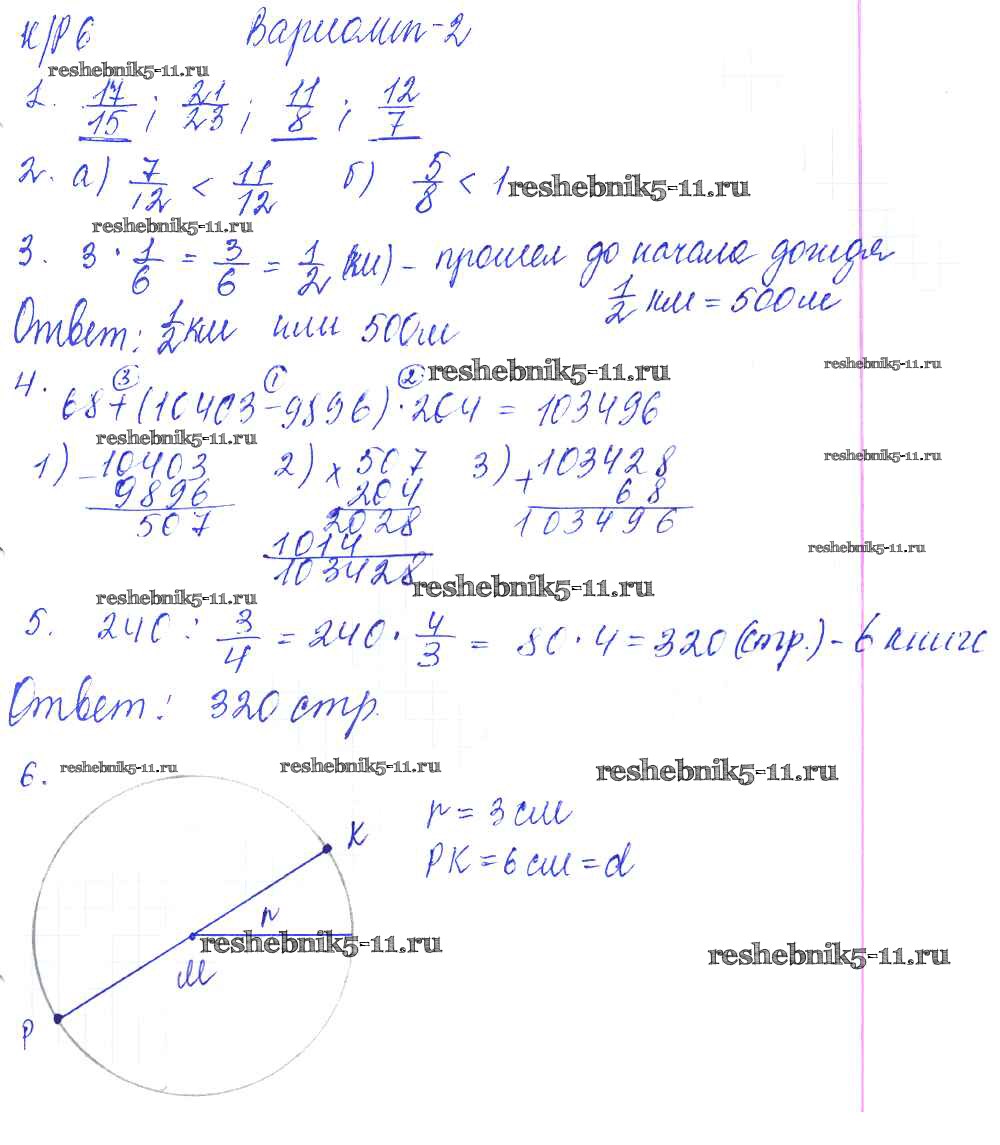 К/Р 6 Вариант-2
reshebnik5-11.ru
1. 17/15 ; 21/23 ; 11/8 ; 12/7
2. а) 7/12 < 11/12 б) 5/8 < 1 reshebnik5-11.ru
reshebnik5-11.ru
3. 3 · 1/6 = 3/6 = 1/2 (км) - прошел до начала дождя
1/2 км = 500 м
Ответ: 1/2 км или 500м
4. ③ ① ② reshebnik5-11.ru reshebnik5-11.ru
68+(10403-9896)·204 = 103496
reshebnik5-11.ru reshebnik5-11.ru
1) - 10403 2) × 507 3) + 103428
9896 204 68
507 2028 103496
1014 reshebnik5-11.ru
103428 reshebnik5-11.ru
reshebnik5-11.ru
5. 240 : 3/4 = 240 · 4/3 = 80 · 4 = 320 (стр.) - в книге
Ответ: 320 стр.
6. reshebnik5-11.ru reshebnik5-11.ru reshebnik5-11.ru
r = 3 см
К
РК = 6 см = d
r
reshebnik5-11.ru reshebnik5-11.ru
М
Р